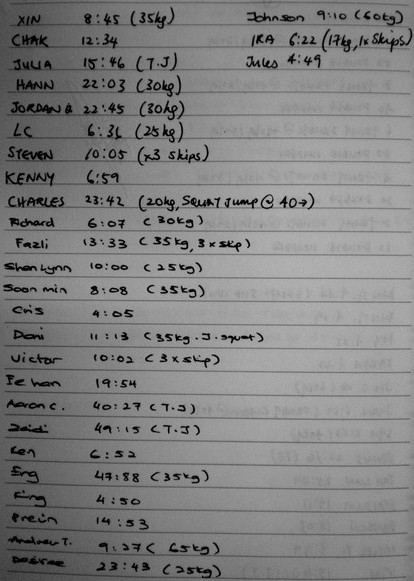 XIN 8:45 (35kg)
CHAK 12:34
JULIA 15:46 (T.J)
HANN 22:03 (30kg)
JORDAN G 22:45 (30kg)
LC 6:31 (25kg)
STEVEN 10:05 (x3 skips)
KENNY 6:59
CHARLES 23:42 (20kg, SQUAT Jump @ 40→)
Richard 6:07 (30kg)
Fazli 13:33 (35kg, 3xskip)
Shan Lynn 10:00 (25kg)
Soon min 8:08 (35kg)
Cris 4:05
Dani 11:13 (35kg. J. squat)
Victor 10:02 (3xskip)
Ie han 19:54
Aaron C. 40:27 (T.J)
Zaidi 49:15 (T.J)
Ken 6:52
Eng 47:88 (35kg)
King 4:50
14:53
Andrew T. 9:27 (65kg)
Desiree 23:43 (25kg)
Johnson 9:10 (60kg)
IRA 6:22 (17kg, 1xskips)
Jules 4:49